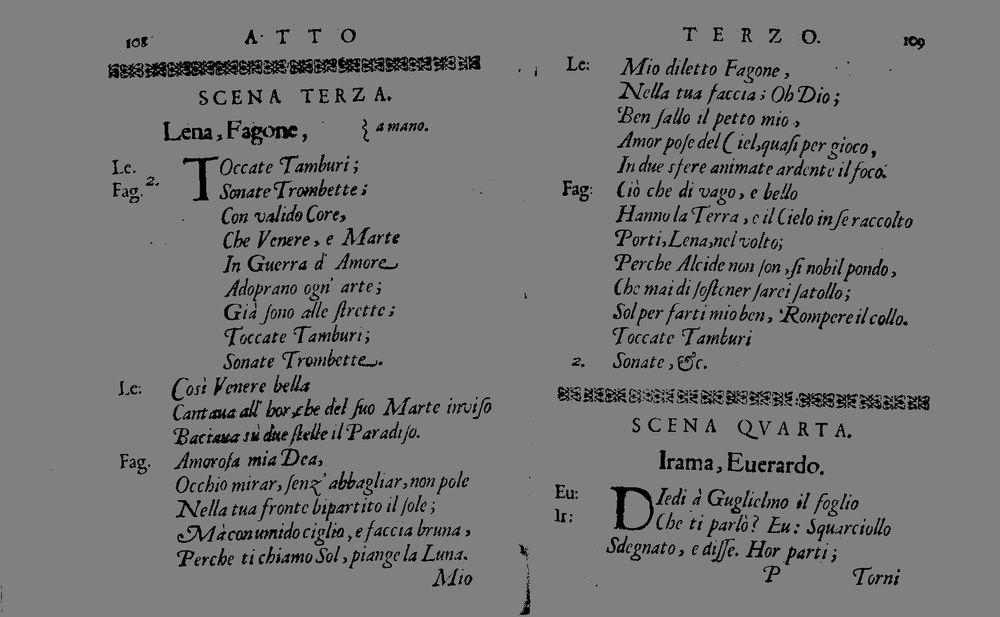 108 ATTO
SCENA TERZA.
Lena, Fagone, } a mano.
Le. TOccate Tamburi;
Fag. 2. Sonate Trombette;
Con valido Core,
Che Venere, e Marte
In Guerra d' Amore
Adoprano ogn' arte;
Già ſono alle ſtrette;
Toccate Tamburi;
Sonate Trombette.
Le: Così Venere bella
Cantaua all' hor, che del ſuo Marte inviſo
Baciaua sù due ſtelle il Paradiſo.
Fag. Amoroſa mia Dea,
Occhio mirar, ſenz' abbagliar, non pole
Nella tua fronte bipartito il ſole;
Mà con umido ciglio, e faccia bruna,
Perche ti chiamo Sol, piange la Luna.
Mio
TERZO. 109
Le: Mio diletto Fagone,
Nella tua faccia; Oh Dio;
Ben ſallo il petto mio,
Amor poſe del Ciel, quaſi per gioco,
In due sfere animate ardente il foco.
Fag: Ciò che di vago, e bello
Hanno la Terra, e il Cielo in ſe raccolto
Porti, Lena, nel volto;
Perche Alcide non ſon, ſi nobil pondo,
Che mai di ſoſtener ſarei ſatollo;
Sol per farti mio ben, Rompere il collo.
Toccate Tamburi
2. Sonate, &c.
SCENA QVARTA.
Irama, Euerardo.
Eu: DIedi à Guglielmo il foglio
Ir: Che ti parlò? Eu: Squarciollo
Sdegnato, e diſſe. Hor parti;
P Torni